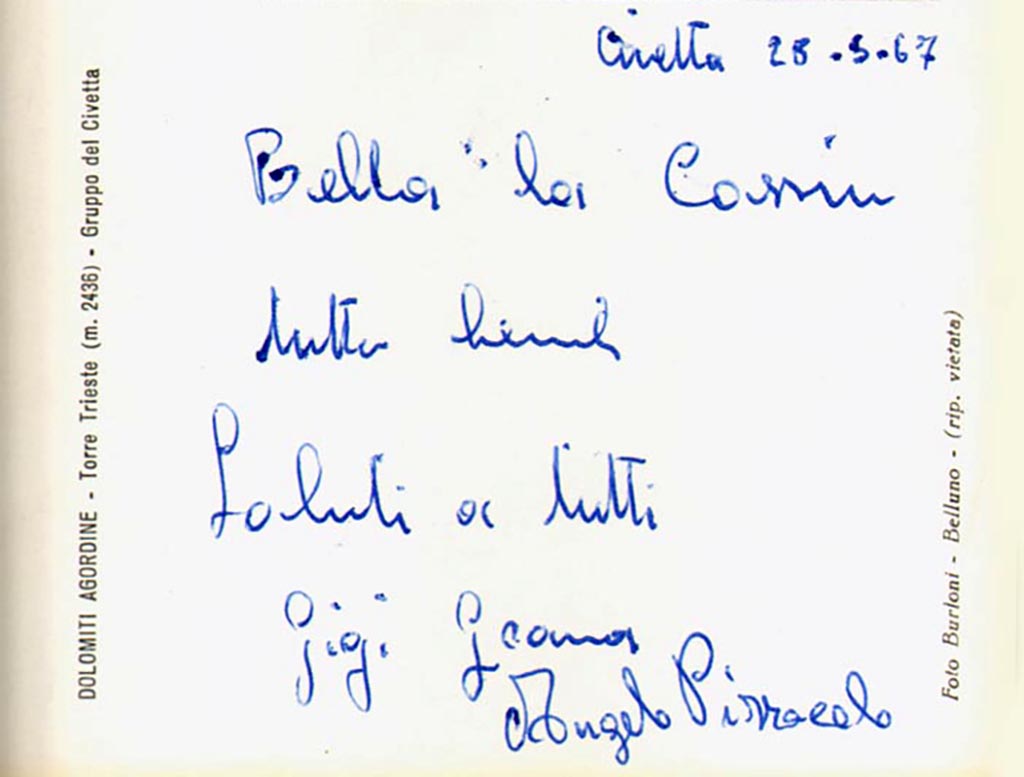 Civetta 28.5.67
Bella la Cassin
tutto bene
Saluti a tutti
Gigi
Angelo Pizzocolo
DOLOMITI AGORDINE - Torre Trieste (m. 2436) - Gruppo del Civetta
Foto Burloni - Belluno - (rip. vietata)